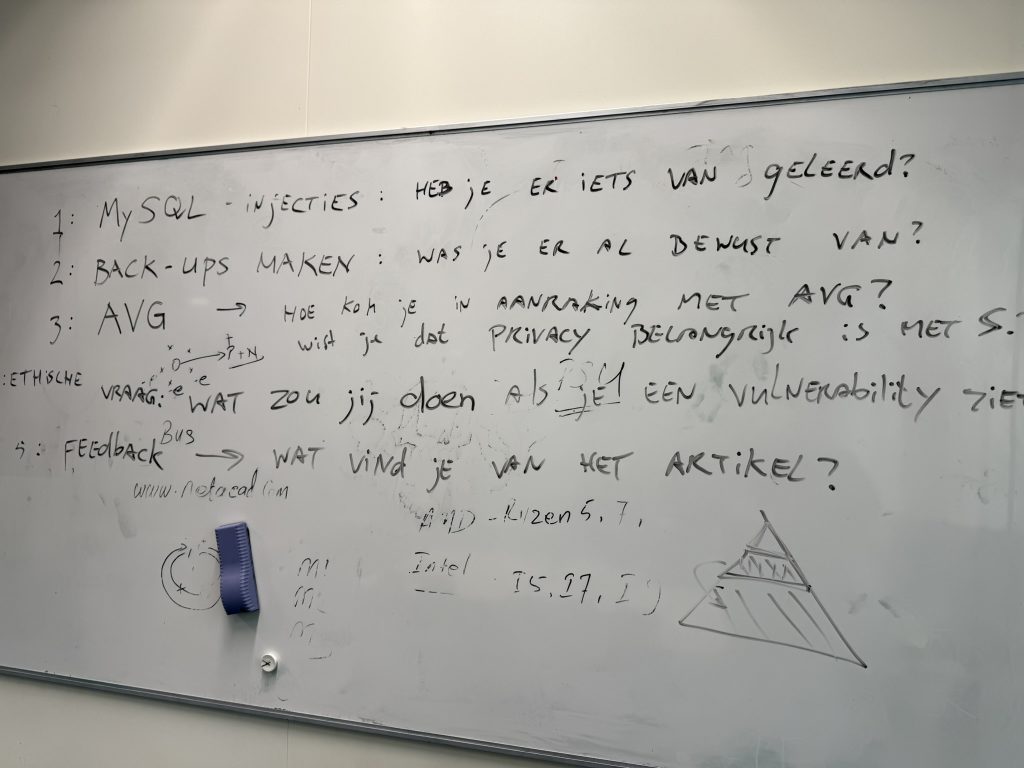 1: MySQL - injecties : HEB je ER iETS VAN geleerd?
2: BACK-UPS MAKEN : WAS je ER AL BEWUST VAN?
3: AVG → HOE KOM je iN AANRAKING MET AVG?
wist je dat PRIVACY BELANGRijK is MET S.?
:ETHISCHE VRAAG: WAT zou jij doen als je EEN VULNERABility ZIET
5: FEEdBACK → WAT ViNd je VAN HET ARTiKEL?
AMD - Ryzen 5, 7,
Intel I5, I7, I9